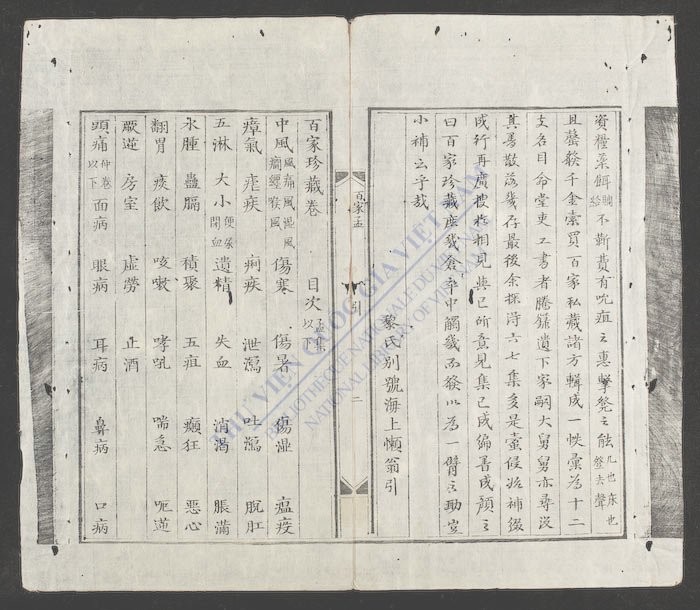 資糧藥餌
不靳費有吮疽之惠擊甃之能
且罄篋千金索買百家私藏諸方輯成一帙彙為十二
支名目命堂吏工書者謄錄遺下家嗣大舅舅亦尋沒
其善散落幾存最後余探淂六七集多是蠹侵將補綴
成行再廣搜將相見與已所意見集已成編善成顏之
曰百家珍藏庶幾倉卒中觸幾而發以為一臂之助豈
小補云乎哉
黎氏别號海上懶翁引
百家孟
引
二
百家珍藏卷 目次 孟集以下
中風 風痛 風毘風 癇 經 喉風 傷寒 傷暑 傷濕 瘟疫
瘴氣 瘧疾 痢疾 泄瀉 吐瀉 脫肛
五淋 大小便張閉血 遺精 失血 消渴 脹滿
水腫 蠱膈 積聚 五疸 癲狂 惡心
翻胃 痰飲 咳嗽 哮吼 喘急 呃逆
厥逆 房室 虛勞 止酒
頭痛 仲卷以下 面病 眼病 耳病 鼻病 口病
THƯ VIỆN QUỐC GIA VIỆT NAM
BIBLIOTHÈQUE NATIONALE DU VIETNAM
NATIONAL LIBRARY OF VIETNAM